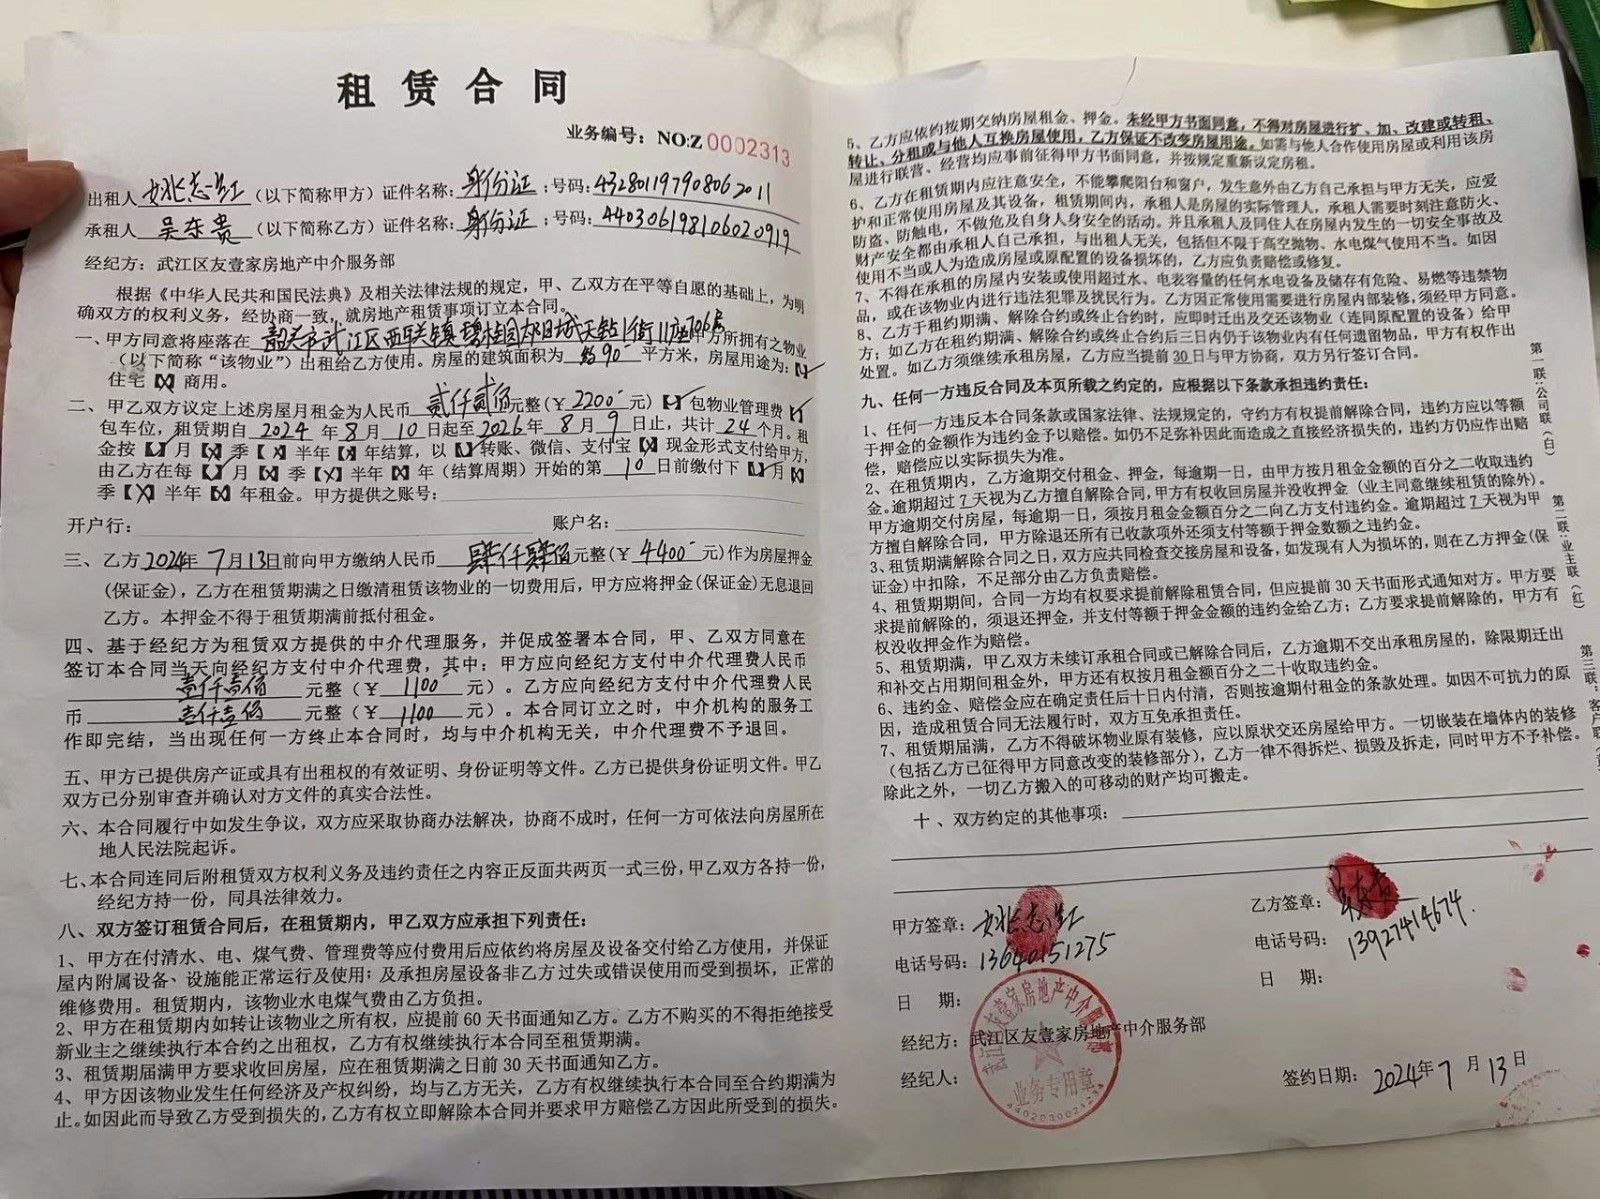 租赁合同
业务编号：NO:Z 0002313
出租人 姚志红（以下简称甲方）证件名称：身份证；号码：432801197908062011
承租人 吴东贵（以下简称乙方）证件名称：身份证；号码：440306198106020919
经纪方：武江区友壹家房地产中介服务部
根据《中华人民共和国民法典》及相关法律法规的规定，甲、乙双方在平等自愿的基础上，为明
确双方的权利义务，经协商一致，就房地产租赁事项订立本合同。
一、甲方同意将座落在 韶关市武江区西联镇碧桂园太阳城天钻1街11座706号 甲方所拥有之物业
（以下简称“该物业”）出租给乙方使用。房屋的建筑面积为 约90 平方米，房屋用途为：【✓】
住宅【X】商用。
二、甲乙双方议定上述房屋月租金为人民币 贰仟贰佰元整（￥2200 元）【✓】包物业管理费【✓】
包车位，租赁期自 2024 年 8 月 10 日起至 2026 年 8 月 9 日止，共计 24 个月。租
金按【✓】月【X】季【X】半年【X】年结算，以【✓】转账、微信、支付宝【X】现金形式支付给甲方，
由乙方在每【✓】月【X】季【X】半年【X】年（结算周期）开始的第 10 日前缴付下【✓】月【X】
季【X】半年【X】年租金。甲方提供之账号：
开户行： 账户名：
三、乙方 2024年 7月13日前向甲方缴纳人民币 肆仟肆佰元整（￥4400 元）作为房屋押金
（保证金），乙方在租赁期满之日缴清租赁该物业的一切费用后，甲方应将押金（保证金）无息退回
乙方。本押金不得于租赁期满前抵付租金。
四、基于经纪方为租赁双方提供的中介代理服务，并促成签署本合同，甲、乙双方同意在
签订本合同当天向经纪方支付中介代理费，其中：甲方应向经纪方支付中介代理费人民币
壹仟壹佰 元整（￥ 1100 元）。乙方应向经纪方支付中介代理费人民
币 壹仟壹佰 元整（￥ 1100 元）。本合同订立之时，中介机构的服务工
作即完结，当出现任何一方终止本合同时，均与中介机构无关，中介代理费不予退回。
五、甲方已提供房产证或具有出租权的有效证明、身份证明等文件。乙方已提供身份证明文件。甲乙
双方已分别审查并确认对方文件的真实合法性。
六、本合同履行中如发生争议，双方应采取协商办法解决，协商不成时，任何一方可依法向房屋所在
地人民法院起诉。
七、本合同连同后附租赁双方权利义务及违约责任之内容正反面共两页一式三份，甲乙双方各持一份，
经纪方持一份，同具法律效力。
八、双方签订租赁合同后，在租赁期内，甲乙双方应承担下列责任：
1、甲方在付清水、电、煤气费、管理费等应付费用后应依约将房屋及设备交付给乙方使用，并保证
屋内附属设备、设施能正常运行及使用；及承担房屋设备非乙方过失或错误使用而受到损坏，正常的
维修费用。租赁期内，该物业水电煤气费由乙方负担。
2、甲方在租赁期内如转让该物业之所有权，应提前 60 天书面通知乙方。乙方不购买的不得拒绝接受
新业主之继续执行本合约之出租权，乙方有权继续执行本合同至租赁期满。
3、租赁期届满甲方要求收回房屋，应在租赁期满之日前 30 天书面通知乙方。
4、甲方因该物业发生任何经济及产权纠纷，均与乙方无关，乙方有权继续执行本合同至合约期满为
止。如因此而导致乙方受到损失的，乙方有权立即解除本合同并要求甲方赔偿乙方因此所受到的损失。
5、乙方应依约按期交纳房屋租金、押金。未经甲方书面同意，不得对房屋进行扩、加、改建或转租、
转让、分租或与他人互换房屋使用，乙方保证不改变房屋用途。如需与他人合作使用房屋或利用该房
屋进行联营、经营均应事前征得甲方书面同意，并按规定重新议定房租。
6、乙方在租赁期内应注意安全，不能攀爬阳台和窗户，发生意外由乙方自己承担与甲方无关，应爱
护和正常使用房屋及其设备，租赁期间内，承租人是房屋的实际管理人，承租人需要时刻注意防火、
防盗、防触电，不做危及自身人身安全的活动。并且承租人及同住人在房屋内发生的一切安全事故及
财产安全都由承租人自己承担，与出租人无关，包括但不限于高空抛物、水电煤气使用不当。如因
使用不当或人为造成房屋或原配置的设备损坏的，乙方应负责赔偿或修复。
7、不得在承租的房屋内安装或使用超过水、电表容量的任何水电设备及储存有危险、易燃等违禁物
品，或在该物业内进行违法犯罪及扰民行为。乙方因正常使用需要进行房屋内部装修，须经甲方同意。
8、乙方于租约期满、解除合约或终止合约时，应即时迁出及交还该物业（连同原配置的设备）给甲
方；如乙方在租约期满、解除合约或终止合约后三日内仍于该物业内有任何遗留物品，甲方有权作出
处置。如乙方须继续承租房屋，乙方应当提前 30 日与甲方协商，双方另行签订合同。
九、任何一方违反合同及本页所载之约定的，应根据以下条款承担违约责任：
1、任何一方违反本合同条款或国家法律、法规规定的，守约方有权提前解除合同，违约方应以等额
于押金的金额作为违约金予以赔偿。如仍不足弥补因此而造成之直接经济损失的，违约方仍应作出赔
偿，赔偿应以实际损失为准。
2、在租赁期内，乙方逾期交付租金、押金，每逾期一日，由甲方按月租金金额的百分之二收取违约
金。逾期超过 7 天视为乙方擅自解除合同，甲方有权收回房屋并没收押金（业主同意继续租赁的除外）。
甲方逾期交付房屋，每逾期一日，须按月租金金额百分之二向乙方支付违约金。逾期超过 7 天视为甲
方擅自解除合同，甲方除退还所有已收款项外还须支付等额于押金数额之违约金。
3、租赁期满解除合同之日，双方应共同检查交接房屋和设备，如发现有人为损坏的，则在乙方押金（保
证金）中扣除，不足部分由乙方负责赔偿。
4、租赁期期间，合同一方均有权要求提前解除租赁合同，但应提前 30 天书面形式通知对方。甲方要
求提前解除的，须退还押金，并支付等额于押金金额的违约金给乙方；乙方要求提前解除的，甲方有
权没收押金作为赔偿。
5、租赁期满，甲乙双方未续订承租合同或已解除合同后，乙方逾期不交出承租房屋的，除限期迁出
和补交占用期间租金外，甲方还有权按月租金额百分之二十收取违约金。
6、违约金、赔偿金应在确定责任后十日内付清，否则按逾期付租金的条款处理。如因不可抗力的原
因，造成租赁合同无法履行时，双方互免承担责任。
7、租赁期届满，乙方不得破坏物业原有装修，应以原状交还房屋给甲方。一切嵌装在墙体内的装修
（包括乙方已征得甲方同意改变的装修部分），乙方一律不得拆烂、损毁及拆走，同时甲方不予补偿。
除此之外，一切乙方搬入的可移动的财产均可搬走。
十、双方约定的其他事项：
甲方签章：姚志红
电话号码：13640151275
日 期：
经纪方：武江区友壹家房地产中介服务部
经纪人：
乙方签章：吴东贵
电话号码：13927414674.
日 期：
签约日期：2024年 7 月 13 日
武江区友壹家房地产中介服务部
业务专用章
第一联：公司联（白）
第二联：业主联（红）
第三联：客户联